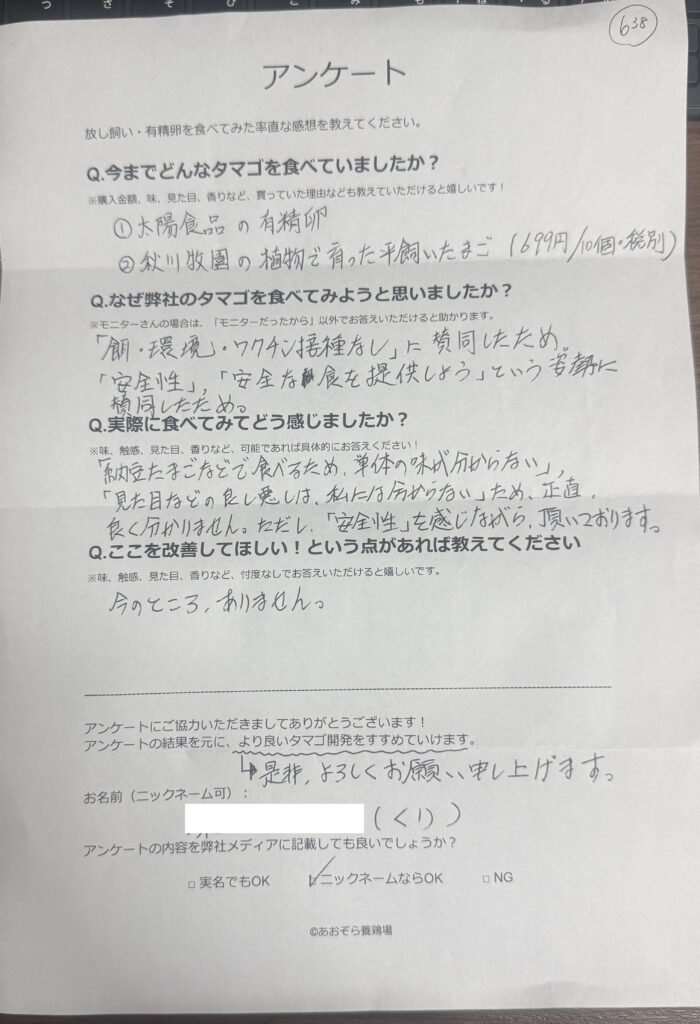 つ さ そ ひ こ み も ね る め
638
アンケート
放し飼い・有精卵を食べてみた率直な感想を教えてください。
Q.今までどんなタマゴを食べていましたか？
※購入金額、味、見た目、香りなど、買っていた理由なども教えていただけると嬉しいです！
①太陽食品の有精卵
②秋川牧園の植物で育った平飼いたまご（699円/10個・税別）
Q.なぜ弊社のタマゴを食べてみようと思いましたか？
※モニターさんの場合は、「モニターだったから」以外でお答えいただけると助かります。
「餌・環境」・ワクチン接種なし」に賛同したため。
「安全性」，「安全な食を提供しよう」という姿勢に
賛同したため。
Q.実際に食べてみてどう感じましたか？
※味、触感、見た目、香りなど、可能であれば具体的にお答えください！
「納豆たまごなどで食べるため、単体の味が分からない」，
「見た目などの良し悪しは、私には分からない」ため、正直，
良く分かりません。ただし、「安全性」を感じながら、頂いております。
Q.ここを改善してほしい！という点があれば教えてください
※味、触感、見た目、香りなど、忖度なしでお答えいただけると嬉しいです。
今のところ，ありません。
アンケートにご協力いただきましてありがとうございます！
アンケートの結果を元に、より良いタマゴ開発をすすめていけます。
↳是非，よろしくお願い申し上げます。
お名前（ニックネーム可）：
（くり）
アンケートの内容を弊社メディアに記載しても良いでしょうか？
□ 実名でもOK ☑ニックネームならOK □ NG
©あおぞら養鶏場